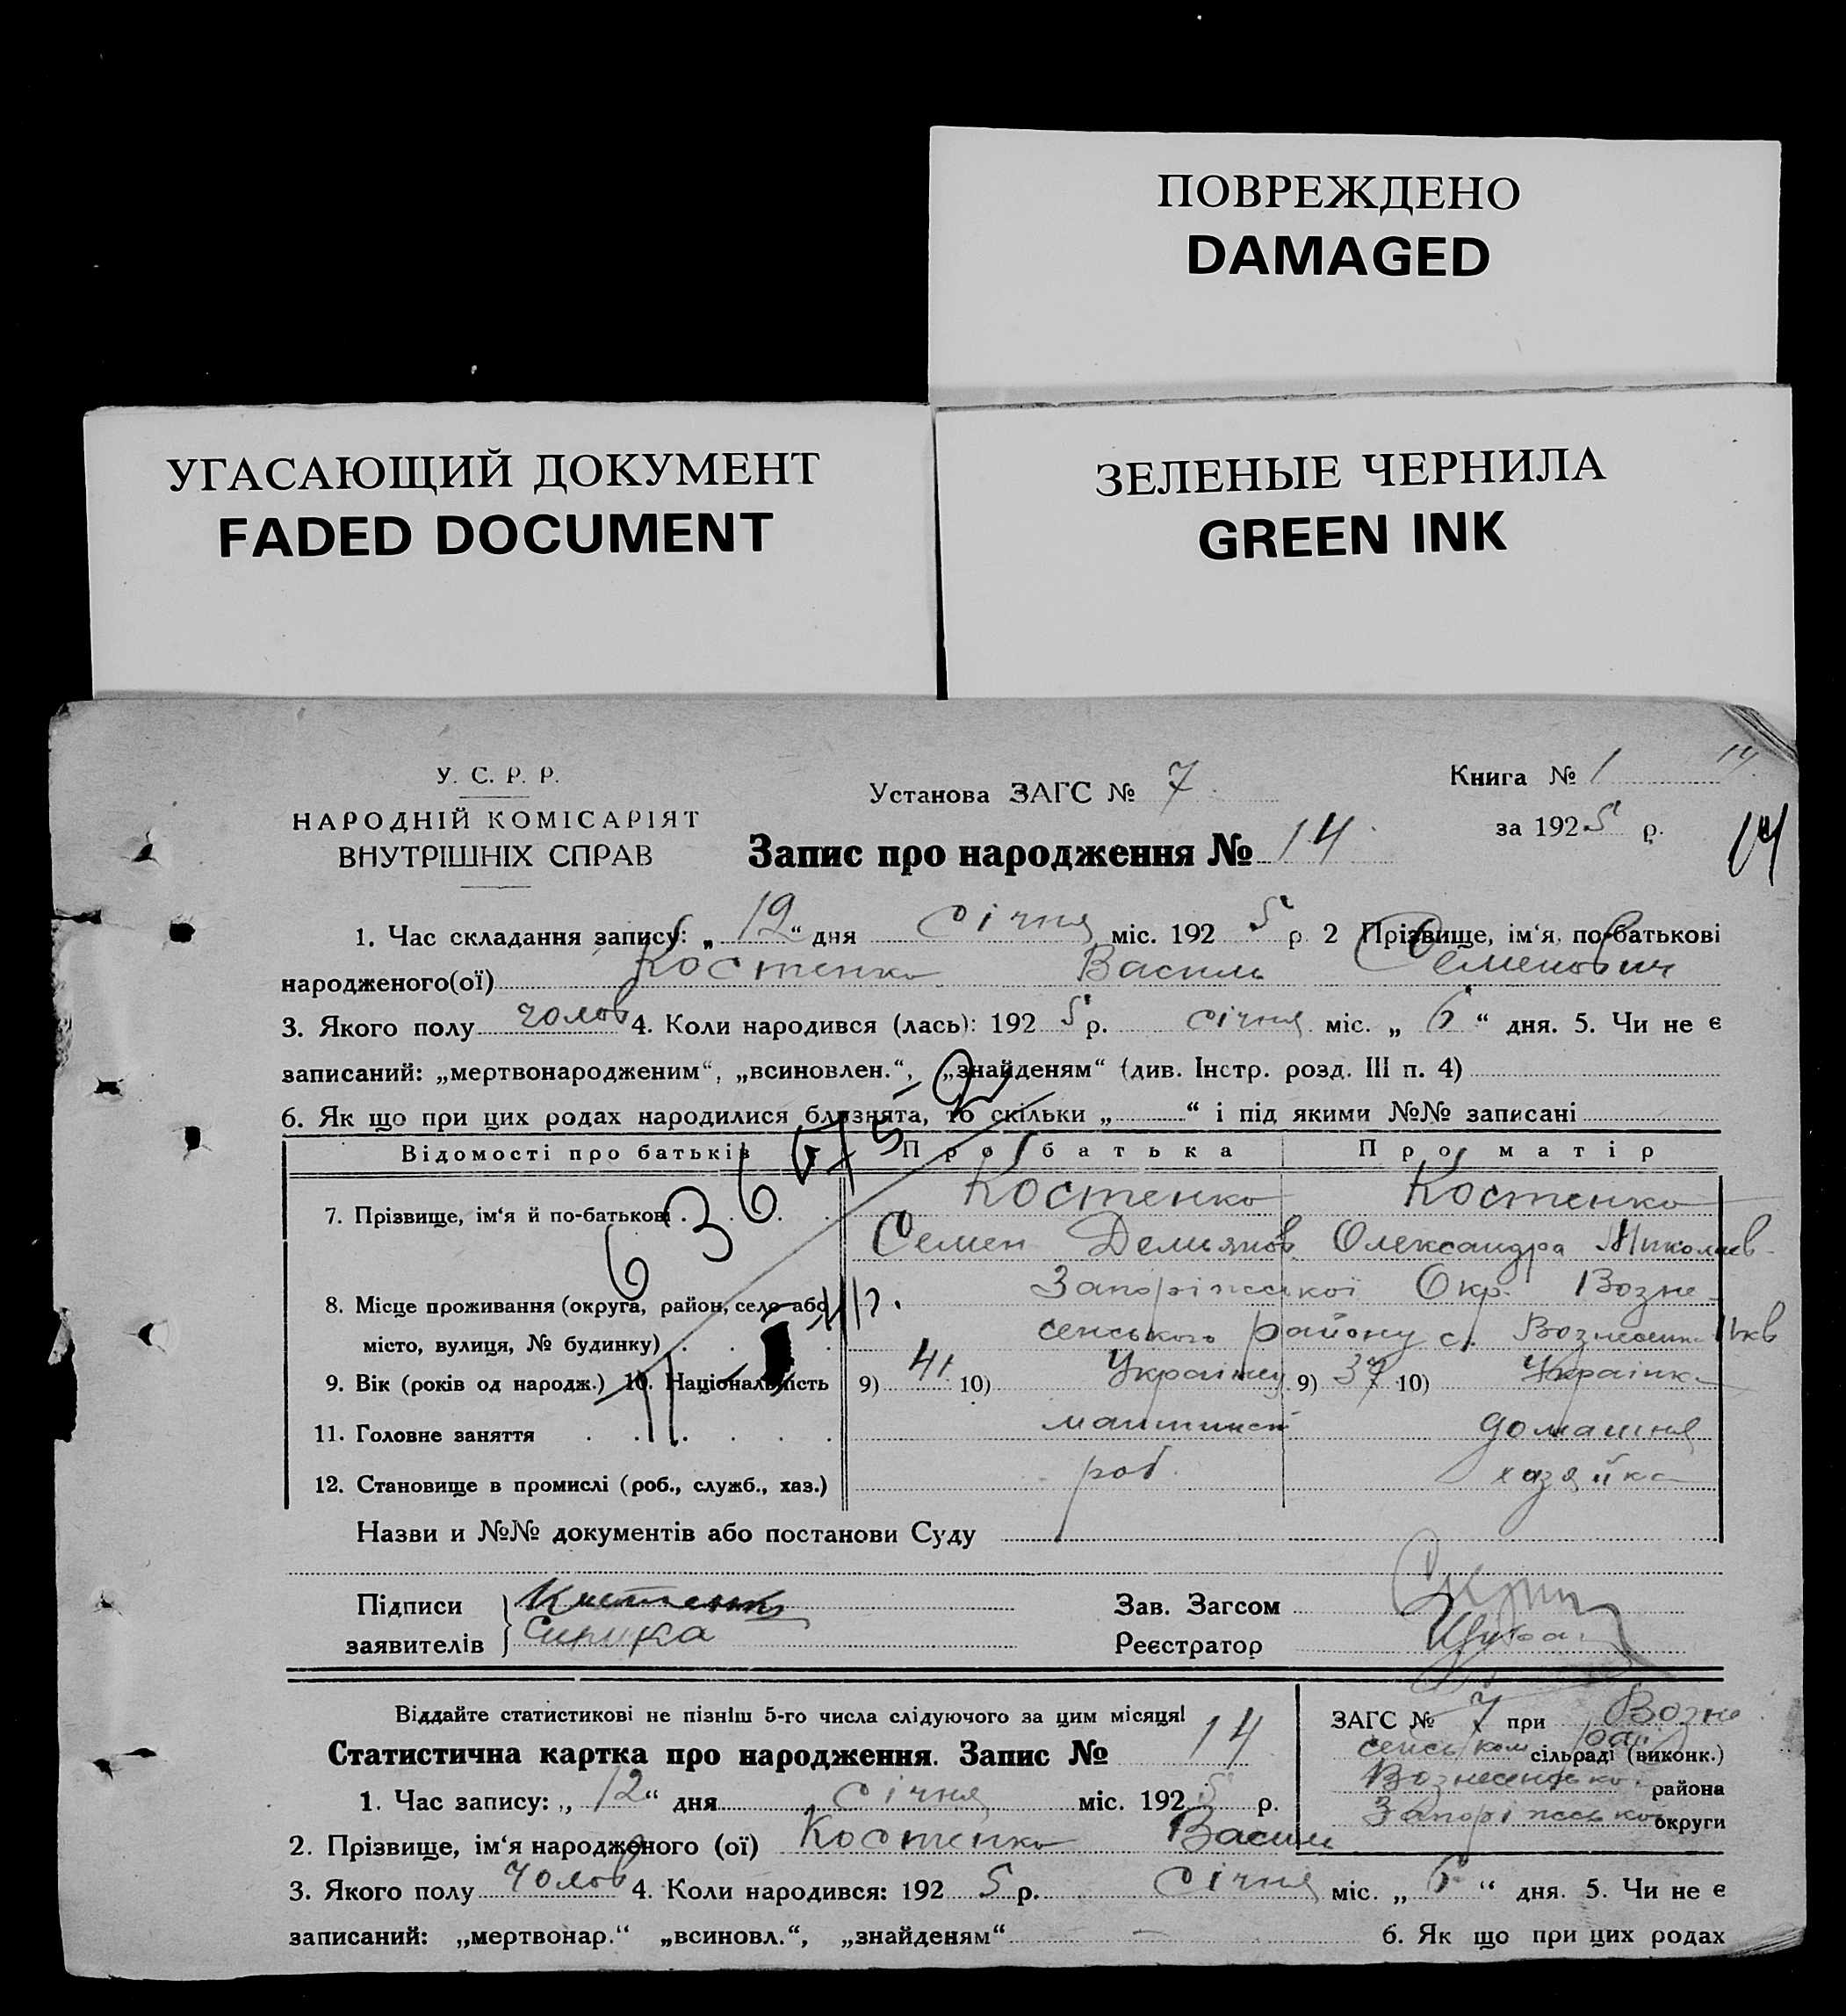 ПОВРЕЖДЕНО
DAMAGED
УГАСАЮЩИЙ ДОКУМЕНТ
FADED DOCUMENT
ЗЕЛЕНЫЕ ЧЕРНИЛА
GREEN INK
У. С. Р. Р.
НАРОДНІЙ КОМІСАРІЯТ
ВНУТРІШНІХ СПРАВ
Установа ЗАГС № 7
Запис про народження № 14
Книга № 1
14
за 1925 р.
14
1. Час складання запису: „12“ дня січня міс. 1925 р. 2 Прізвище, ім‘я, по-батькові
народженого(ої) Костенко Василь Семенович
3. Якого полу чолов 4. Коли народився (лась): 1925 р. січня міс. „6“ дня. 5. Чи не є
записаний: „мертвонародженим“, „всиновлен.“, „знайденям“ (див. Інстр. розд. III п. 4)
6. Як що при цих родах народилися близнята, то скільки „ “ і під якими №№ записані
Відомості про батьків Про батька Про матір
7. Прізвище, ім‘я й по-батькові Костенко Костенко
Семен Демьянов. Олександра Миколаев-
8. Місце проживання (округа, район, село або Запоріжської Окр. Возне-
місто, вулиця, № будинку) сенського району с.
9. Вік (років од народж.) 10. Національність 9) 41 10) Украінец 9) 37 10) Украінка
11. Головне заняття машиніст домашня
12. Становище в промислі (роб., служб., хаз.) роб. хазяйка
Назви и №№ документів або постанови Суду
Підписи Костенко Зав. Загсом
заявителів Реєстратор
Віддайте статистикові не пізніш 5-го числа слідуючого за цим місяця!
Статистична картка про народження. Запис № 14
ЗАГС № 7 при Возне
сенськом рай сільраді (виконк.)
Вознесенсько района
Запоріжсько округи
1. Час запису: „12“ дня січня міс. 1925 р.
2. Прізвище, ім‘я народженого (ої) Костенко Василь
3. Якого полу чолов 4. Коли народився: 1925 р. січня міс. „6“ дня. 5. Чи не є
записаний: „мертвонар.“ „всиновл.“, „знайденям“ — 6. Як що при цих родах